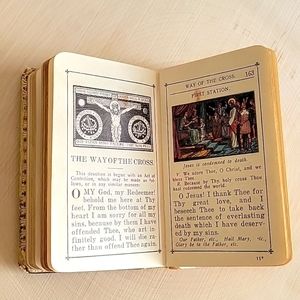 THE WAY OF THE CROSS.
This devotion is begun with an Act of
Contrition, which may be made as fol-
lows, or in any similar manner:
O MY God, my Redeemer!
behold me here at Thy
feet. From the bottom of my
heart I am sorry for all my
sins, because by them I have
offended Thee, who art in-
finitely good. I will die ra-
ther than offend Thee again.
WAY OF THE CROSS. 163
FIRST STATION.
Jesus is condemned to death.
V. We adore Thee, O Christ, and we
bless Thee.
R. Because by Thy holy cross Thou
hast redeemed the world.
O Jesus! I thank Thee for
Thy great love, and I
beseech Thee to take back
the sentence of everlasting
death which I have deserv-
ed by my sins.
Our Father, etc., Hail Mary, etc.,
Glory be to the Father, etc.
11*